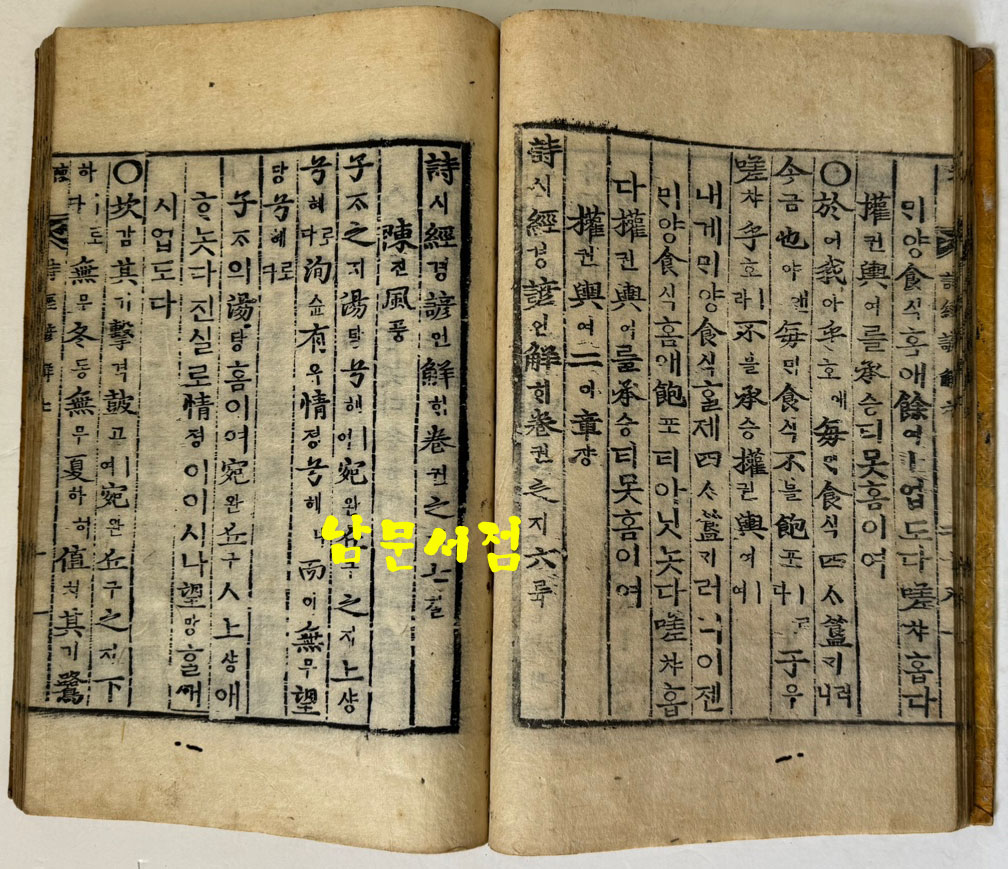 ᄆᆡ양食식홈애餘여ㅣ업도다嗟챠홉다
權권輿여를承승티못홈이여
○於어我아乎호애每ᄆᆡ食식四ᄉᆞ簋궤러니
今금也야앤每ᄆᆡ食식不블飽포ㅣ로다于우
嗟챠乎호ㅣ라不블承승權권輿여ㅣ여
내게ᄆᆡ양食식홀제四ᄉᆞ簋궤러니이젠
ᄆᆡ양食식홈애飽포티아닛놋다嗟챠홉
다權권輿여를承승티못홈이여
權권輿여二이章쟝
詩시經경諺언解ᄒᆡ卷권之지六륙
詩시經경諺언解ᄒᆡ卷권之지七칠
陳진風풍
子ᄌᆞ之지湯탕兮혜여宛완丘구之지上샹
兮혜로다洵슌有유情졍兮혜나而이無무望
망兮혜로다
子ᄌᆞ의湯탕홈이여宛완丘구ㅅ上샹애
ᄒᆞ놋다진실로情졍이이시나望망홀ᄶᅢ
시업도다
○坎감其기擊격鼓고ㅣ여宛완丘구之지下
하ㅣ로다無무冬동無무夏하히値치其기鷺
남문서점